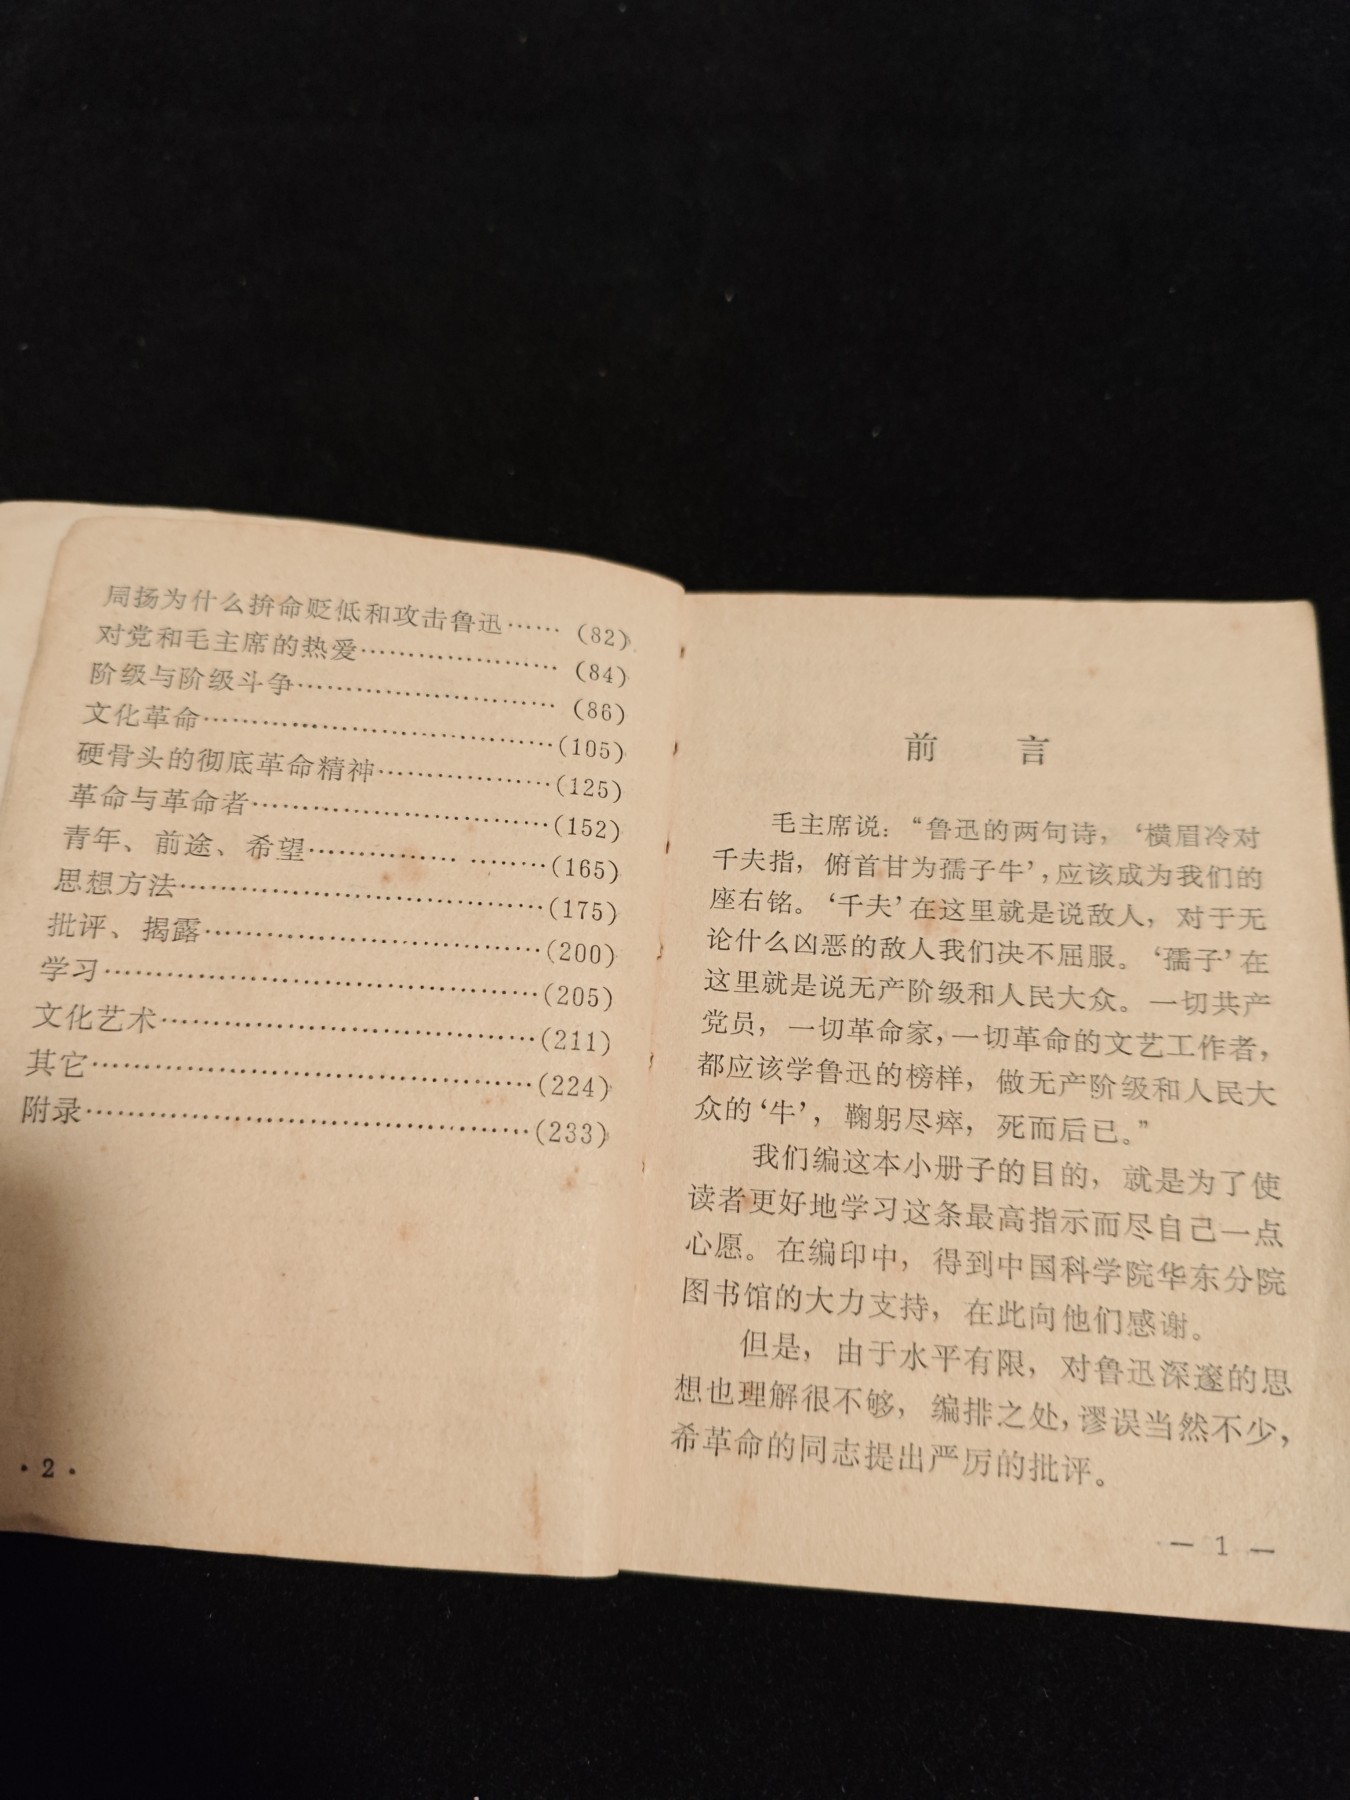 周扬为什么拚命贬低和攻击鲁迅……(82)
对党和毛主席的热爱…………………(84)
阶级与阶级斗争………………………(86)
文化革命………………………………(105)
硬骨头的彻底革命精神………………(125)
革命与革命者…………………………(152)
青年、前途、希望…………… ………(165)
思想方法………………………………(175)
批评、揭露……………………………(200)
学习……………………………………(205)
文化艺术………………………………(211)
其它……………………………………(224)
附录……………………………………(233)
·2·
前 言
毛主席说：“鲁迅的两句诗，‘横眉冷对
千夫指，俯首甘为孺子牛’，应该成为我们的
座右铭。‘千夫’在这里就是说敌人，对于无
论什么凶恶的敌人我们决不屈服。‘孺子’在
这里就是说无产阶级和人民大众。一切共产
党员，一切革命家，一切革命的文艺工作者，
都应该学鲁迅的榜样，做无产阶级和人民大
众的‘牛’，鞠躬尽瘁，死而后已。”
我们编这本小册子的目的，就是为了使
读者更好地学习这条最高指示而尽自己一点
心愿。在编印中，得到中国科学院华东分院
图书馆的大力支持，在此向他们感谢。
但是，由于水平有限，对鲁迅深邃的思
想也理解很不够，编排之处，谬误当然不少，
希革命的同志提出严厉的批评。
— 1 —